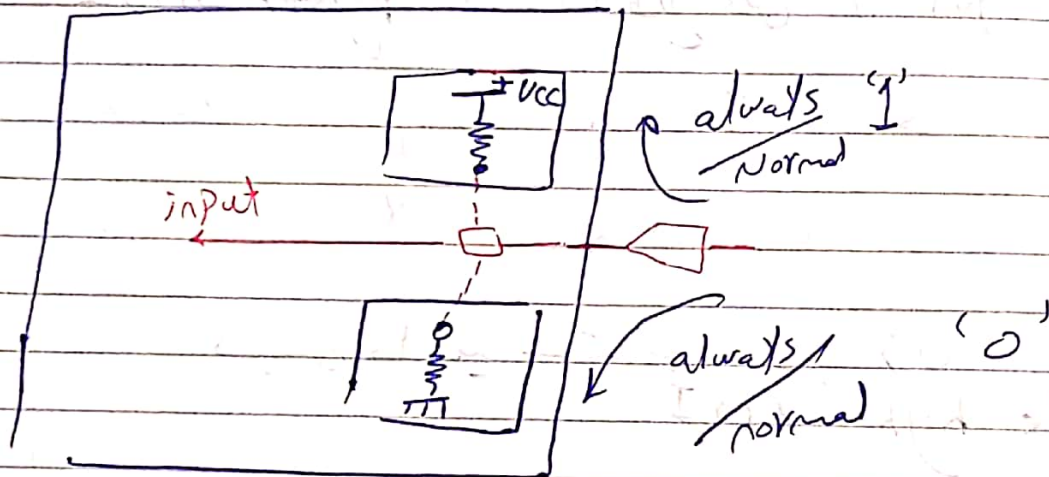 + VCC
always '1'
Normal
input
always '0'
normal